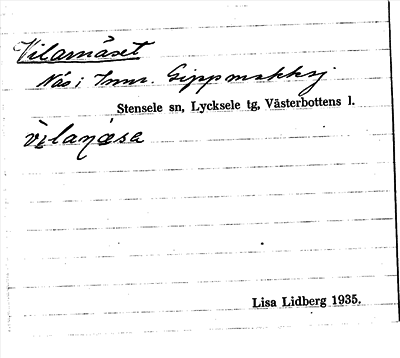 Vilarnäset
Näs i Innr. Gippmokksj
Stensele sn, Lycksele tg, Västerbottens l.
vìlaŋǽsa
Lisa Lidberg 1935.